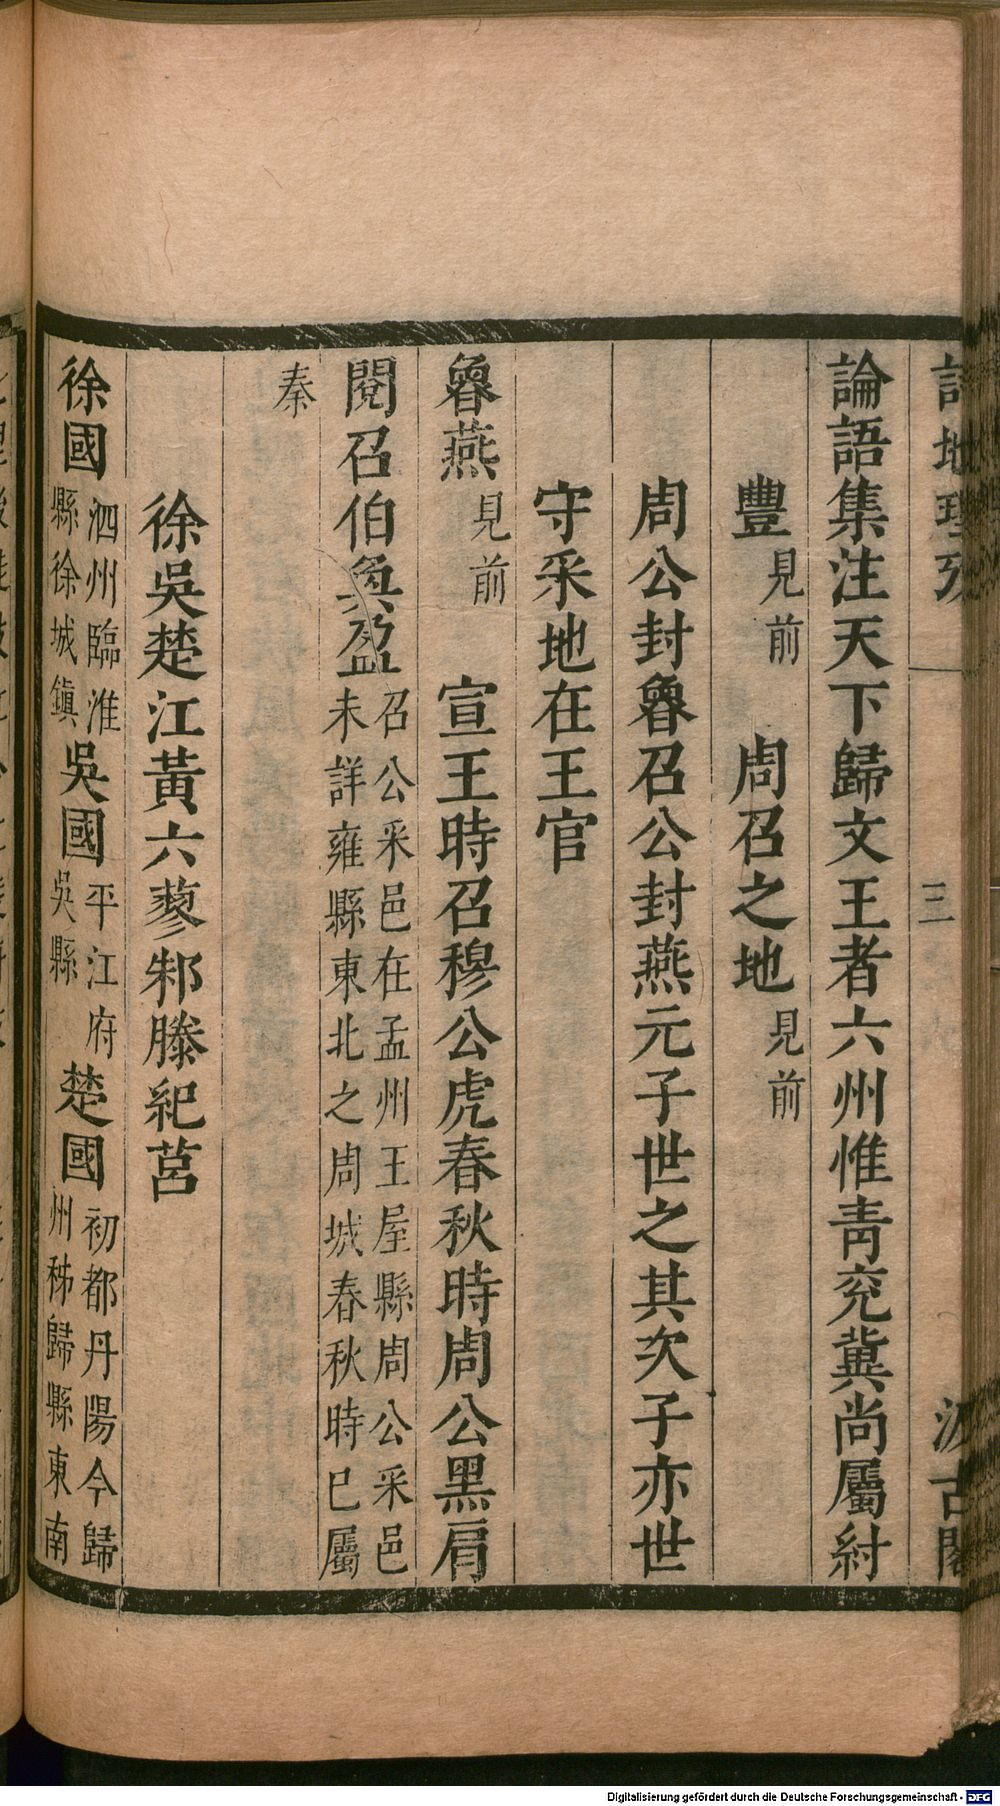 詩地理攷 三 汲古閣
論語集注天下歸文王者六州惟青兗冀尚屬紂
豐見前 周召之地見前
周公封魯召公封燕元子世之其次子亦世
守采地在王官
魯燕見前 宣王時召穆公虎春秋時周公黑肩
閱召伯奐盈召公采邑在孟州王屋縣周公采邑未詳雍縣東北之周城春秋時已屬
秦
徐吳楚江黃六蓼邾滕紀莒
徐國泗州臨淮縣徐城鎮吳國平江府吳縣楚國初都丹陽今歸州秭歸縣東南
Digitalisierung gefördert durch die Deutsche Forschungsgemeinschaft - DFG